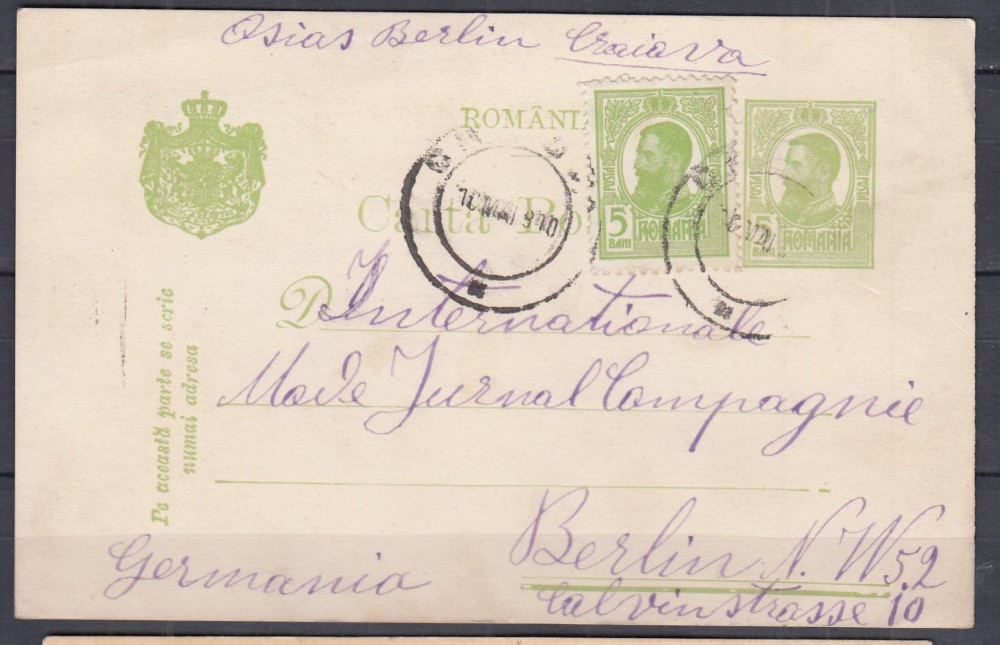 Osias Berlin Craiova
ROMÂNI
Carta Po
POSTA
5
BANI
ROMANIA
POSTA
5
BANI
ROMANIA
D
Internationale
Mode Jurnal Compagnie
Berlin N. W 52
Calvinstrasse 10
Germania
Pe această parte se scrie
numai adresa